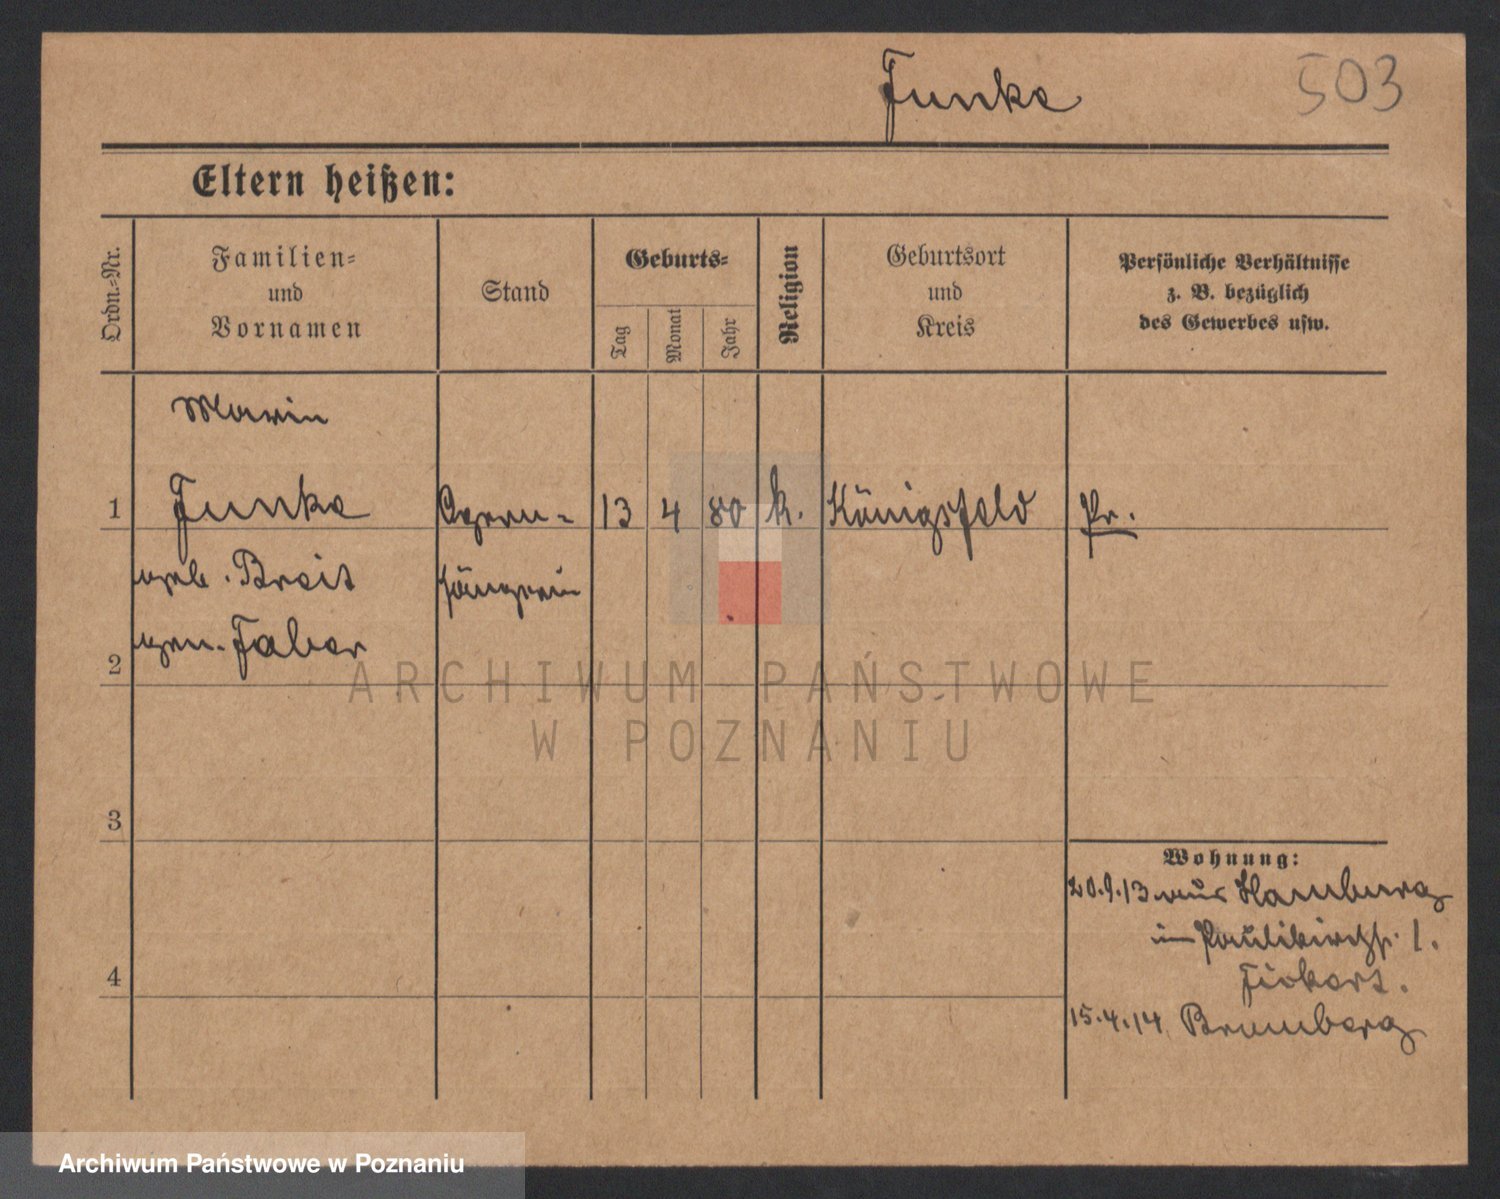 Funke
503
Eltern heißen:
Ordn.-Nr.
Familien-
und
Vornamen
Stand
Geburts-
Tag
Monat
Jahr
Religion
Geburtsort
und
Kreis
Persönliche Verhältnisse
z. B. bezüglich
des Gewerbes usw.
Marie
1 Funke Opern- 13 4 80 k. Königsfeld Pr.
geb. Breit sängerin
2 gen. Faber
ARCHIWUM PAŃSTWOWE
W POZNANIU
3
Wohnung:
20.9.13 aus Hamburg
in Paulikirchstr. 1.
4
15.4.14 Bromberg
Archiwum Państwowe w Poznaniu